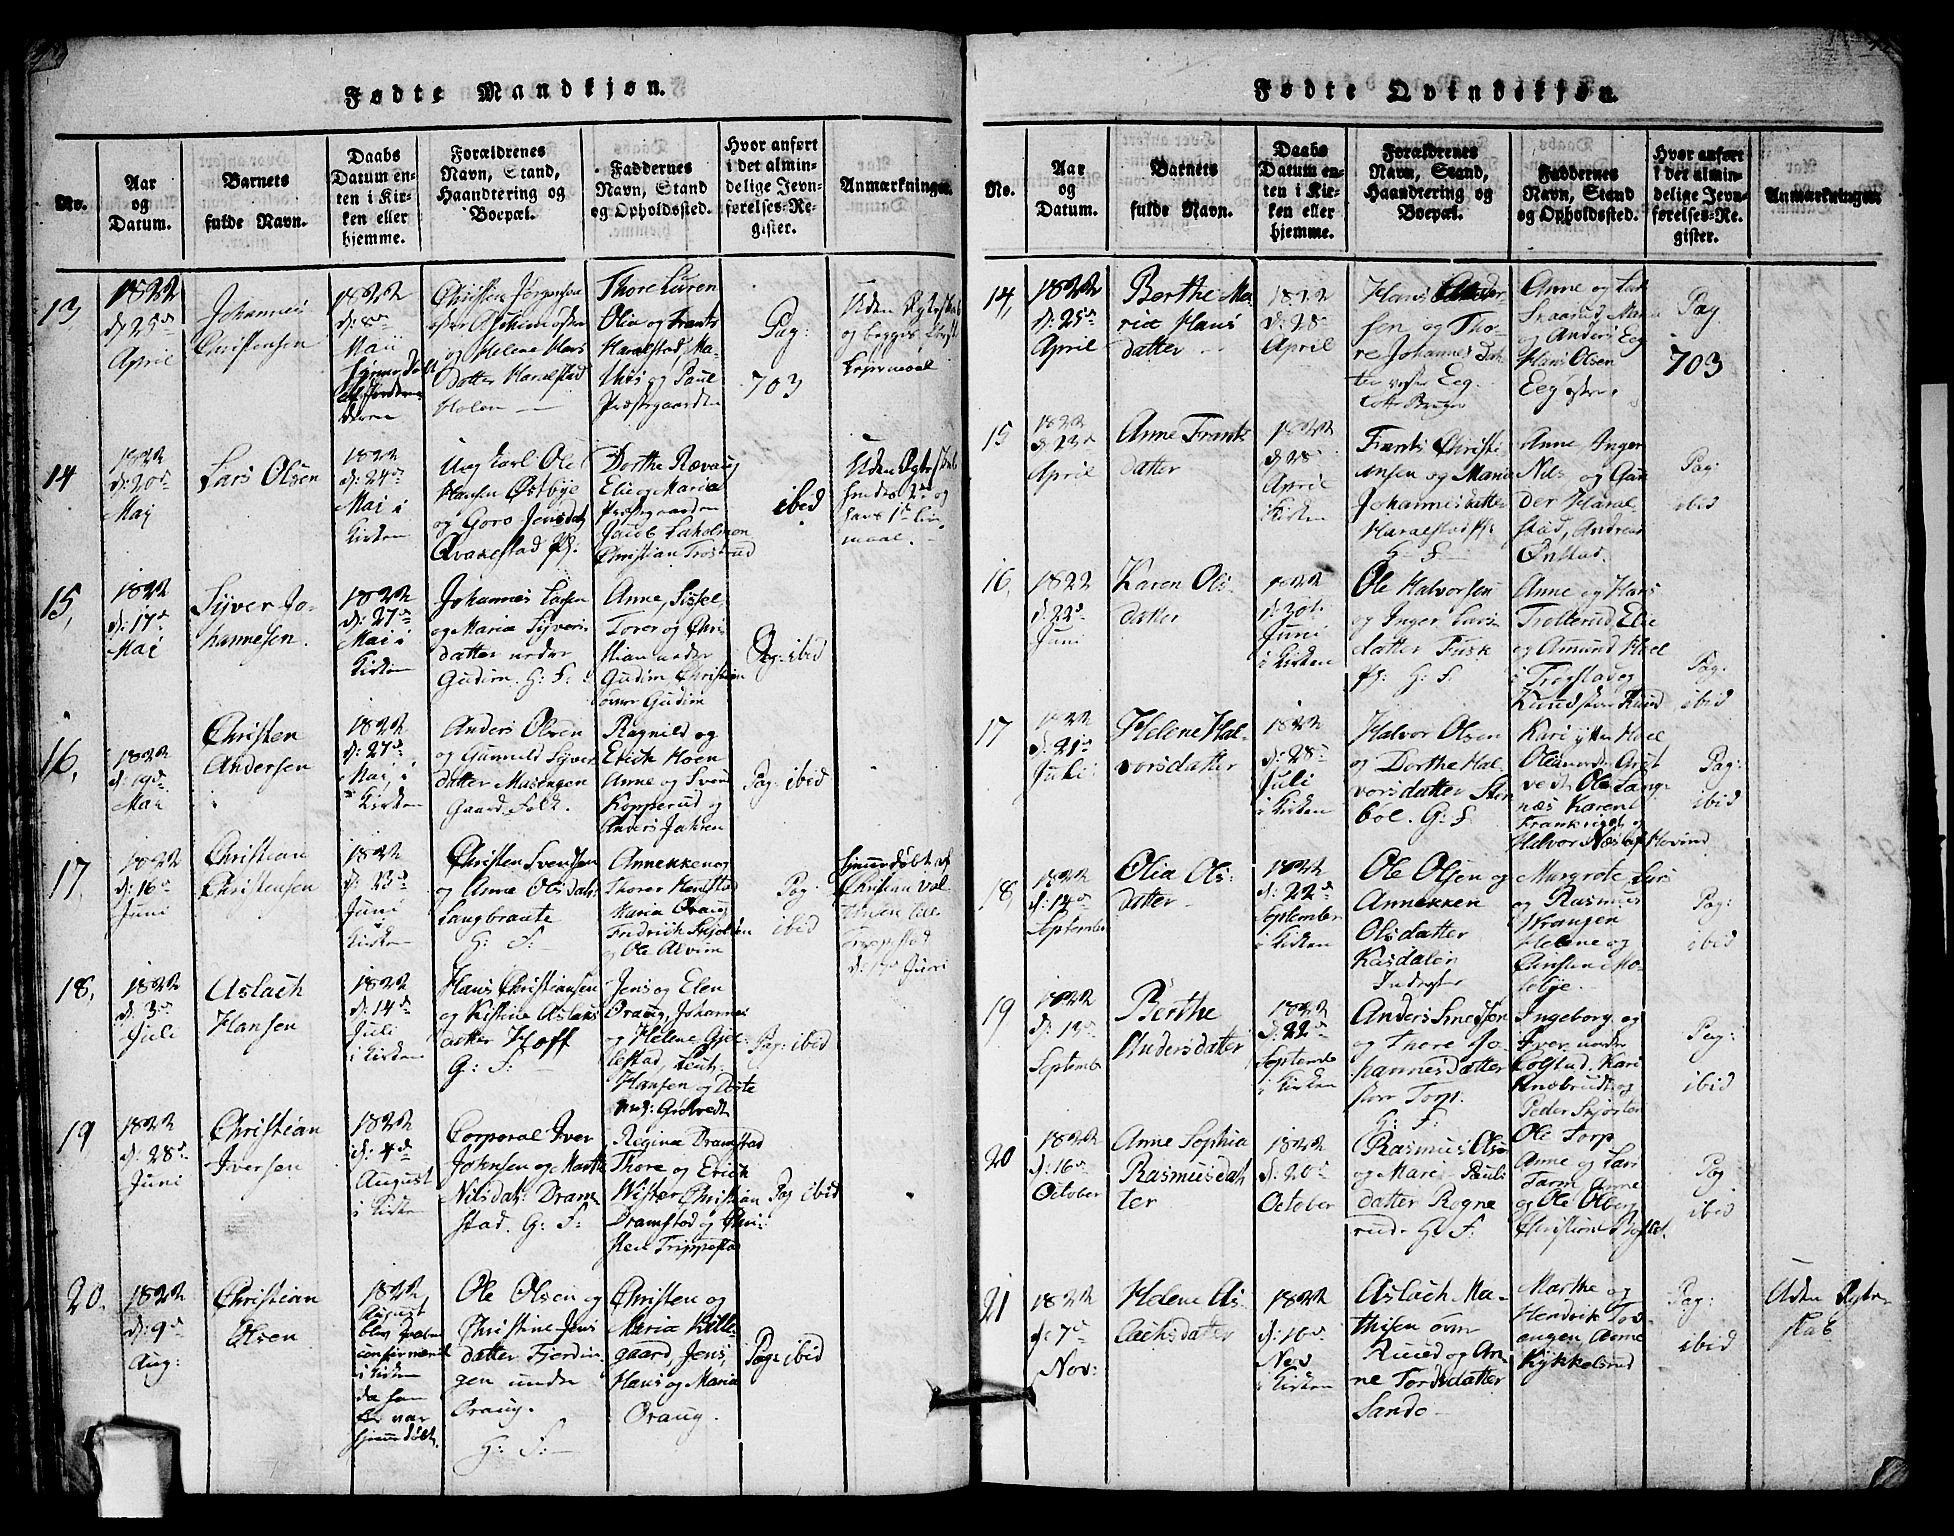 Fødte Mandkjøn.
No.
Aar
og
Datum.
Barnets
fulde Navn.
Daabs
Datum en-
ten i Kir-
ken eller
hjemme.
Forældrenes
Navn, Stand,
Haandtering og
Boepæl.
Faddernes
Navn, Stand
og Opholdssted.
Hvor anført
i det almin-
delige Jevn-
førelses-Re-
gister.
Anmærkninger.
13
1822
d: 25de
April
Johannes
Christensen
1822
Maji
og Helene Hans
datter Haralstad
Holen
Thore Luren
Olia og Frants
Haralstad, Ma-
og Paul
Præstegaarden
Pag:
703
14
1822
d: 20de
Maj
Lars Olsen
1822
d: 24de
Maj i
Kirken
Ung Karl Ole
Hansen Østbye
og Goro Jensdat
Qvakestad
Dorthe Rævaug
Elie og Maria
Præstegaarden
Jacob Laholmen
Christian Trostrud
ibid
15,
1822
d: 17de
Maj
Syver Jo-
hannesen.
1822
d: 27de
Maj i
Kirken
Johannes Larsen
og Maria Syvers-
datter neder
Gudim. G: F:
Anne, Sissel
Torer og Chri-
stian neder
Gudim, Christian
over Gudim
Pag: ibid
16,
1822
d: 19de
Mai
Christen
Andersen
1822
d: 27de
Maj i
Kirken
Anders Olsen
og Gunnild Syver
datter Musengen
Gaard Folk.
Ragnild og
Erick Hoen
Anne og Svend
Kopperud og
Anders Jahren
Pag: ibid
17,
1822
d: 16de
Juni
Christian
Christensen
1822
d: 23de
Juni
Kirken
Christen Svendsen
og Anne Olsdat
Langbraate
G: F:
Annekken og
Thorer Henstad
Maria Oraug
Fredrich Skjolden
og Ole Alvim
Pag:
ibid
Hjemmedøbt af
Christian
Trippestad
d: 17de Juni
18,
1822
d: 3de
Juli
Aslach
Hansen
1822
d: 14de
Juli
i Kirken
Hans Christiansen
og Kistine Aslaks
datter Hoff
G: F:
Jens og Elen
Oraug, Johannes
og Helene Gjel-
lestad, Leut:
Hansen og Dorte
ung: Gislevedt
Pag: ibid
19
1822
d: 28de
Juni
Christian
Iversen
1822
d: 4de
August
i Kirken
Corporal Iver
Johnsen og Marthe
Nilsdat: Dram-
stad. G: F:
Regina Dramstad
Thore og Erick
Wister Christian
Dramstad og Chri-
sten Trippestad
Pag ibid
20.
1822
d: 9de
Aug:
Christian
Olsen
1822
August
blev Daaben
confirmeret
i Kirken
da han
før var
hjemmedøbt
Ole Olsen og
Christine Jens
datter Fjerdin-
gen under
Oraug.
G: F:
Christen og
Maria Kille-
gaard, Jens,
Hans og Maria
Oraug.
Pag: ibid
Fødte Qvindekjøn.
No.
Aar
og
Datum.
Barnets
fulde Navn.
Daabs
Datum en-
ten i Kir-
ken eller
hjemme.
Forældrenes
Navn, Stand,
Haandtering og
Boepæl.
Faddernes
Navn, Stand
og Opholdssted.
Hvor anført
i det almin-
delige Jevn-
førelses-Re-
gister.
Anmærkninger.
14,
1822
d: 25de
April
Berthe Ma-
ria Hans
datter
1822
d: 28de
April
Hans Ander
sen og Tho-
re Johannesdat-
ter vestre Eeg.
Anne og Lars
og Anders Eeg
Hans Olsen
Eeg østre
Pag.
703
15
1822
d: 23de
April
Anne Frants
datter
1822
d: 28de
April
i Kirken
Frants Christi-
ansen og Maria
Johannesdatter
Haralstad
G: F:
Anne Inger
Nils og Gun
der Haral-
stad, Andreas
Onstad.
Pag:
ibid
16,
1822
d: 22de
Juni
Karen Ols-
datter
1822
d: 30te
Juni
i Kirken
Ole Halvorsen
og Inger Lars-
datter Fusk
G: F:
Anne og Hans
Trollerud, Elie
og Amund Hoel
i Trøgstad og
Pag:
ibid
17
1822
d: 21de
Juli
Helene Hal-
vorsdatter
1822
d: 28de
Juli
i Kirken
Halvor Olsen
og Dorthe Hal-
vorsdatter Sten-
bøl. G: F
Kari ytter Hoel
Ole nordre Grøt
vedt, Ole Lang-
næs Karen
Frankriget og
Halvor Næs af Hovind
Pag:
ibid
18
1822
d: 14de
September
Olia Ols-
datter
1822
d: 22de
September
i Kirken
Ole Olsen og
Annekken
Olsdatter
Kasdalen
Inderster
Margrete Lars
og Rasmus
Krangen
Helene og
Christen Mo-
sebye.
Pag:
ibid
19
1822
d: 13de
September
Berthe
Andersdatter
1822
d: 22de
Septembr
i Kirken
Anders Smedsen
og Thore Jo-
hannesdatter
stor Torp.
G: F:
Ingeborg og
Iver nordre
Colstad. Kari
Knobrudt og
Peder Skjorten
Ole Torp
Pag:
ibid
20
1822
d: 16de
October
Anne Sophia
Rasmusdat-
ter
1822
d: 20de
October
Rasmus Olsen
og Mari Pauls
datter Rogne-
rud. G: F:
Anne og Lars
Tarm Anne
og Ole Olberg
Christian
Pag
ibid
21
1822
d: 7de
Nov:
Helene As-
lachsdatter
1822
d: 10de
Nov
i Kirken
Aslach Ma-
thisen over
Ruud og An-
ne Tordsdatter
Sando
Marthe og
Hendrik Tos-
engen, Anne
Kykkelsrud
Pag:
ibid
Uden Ægte-
skab